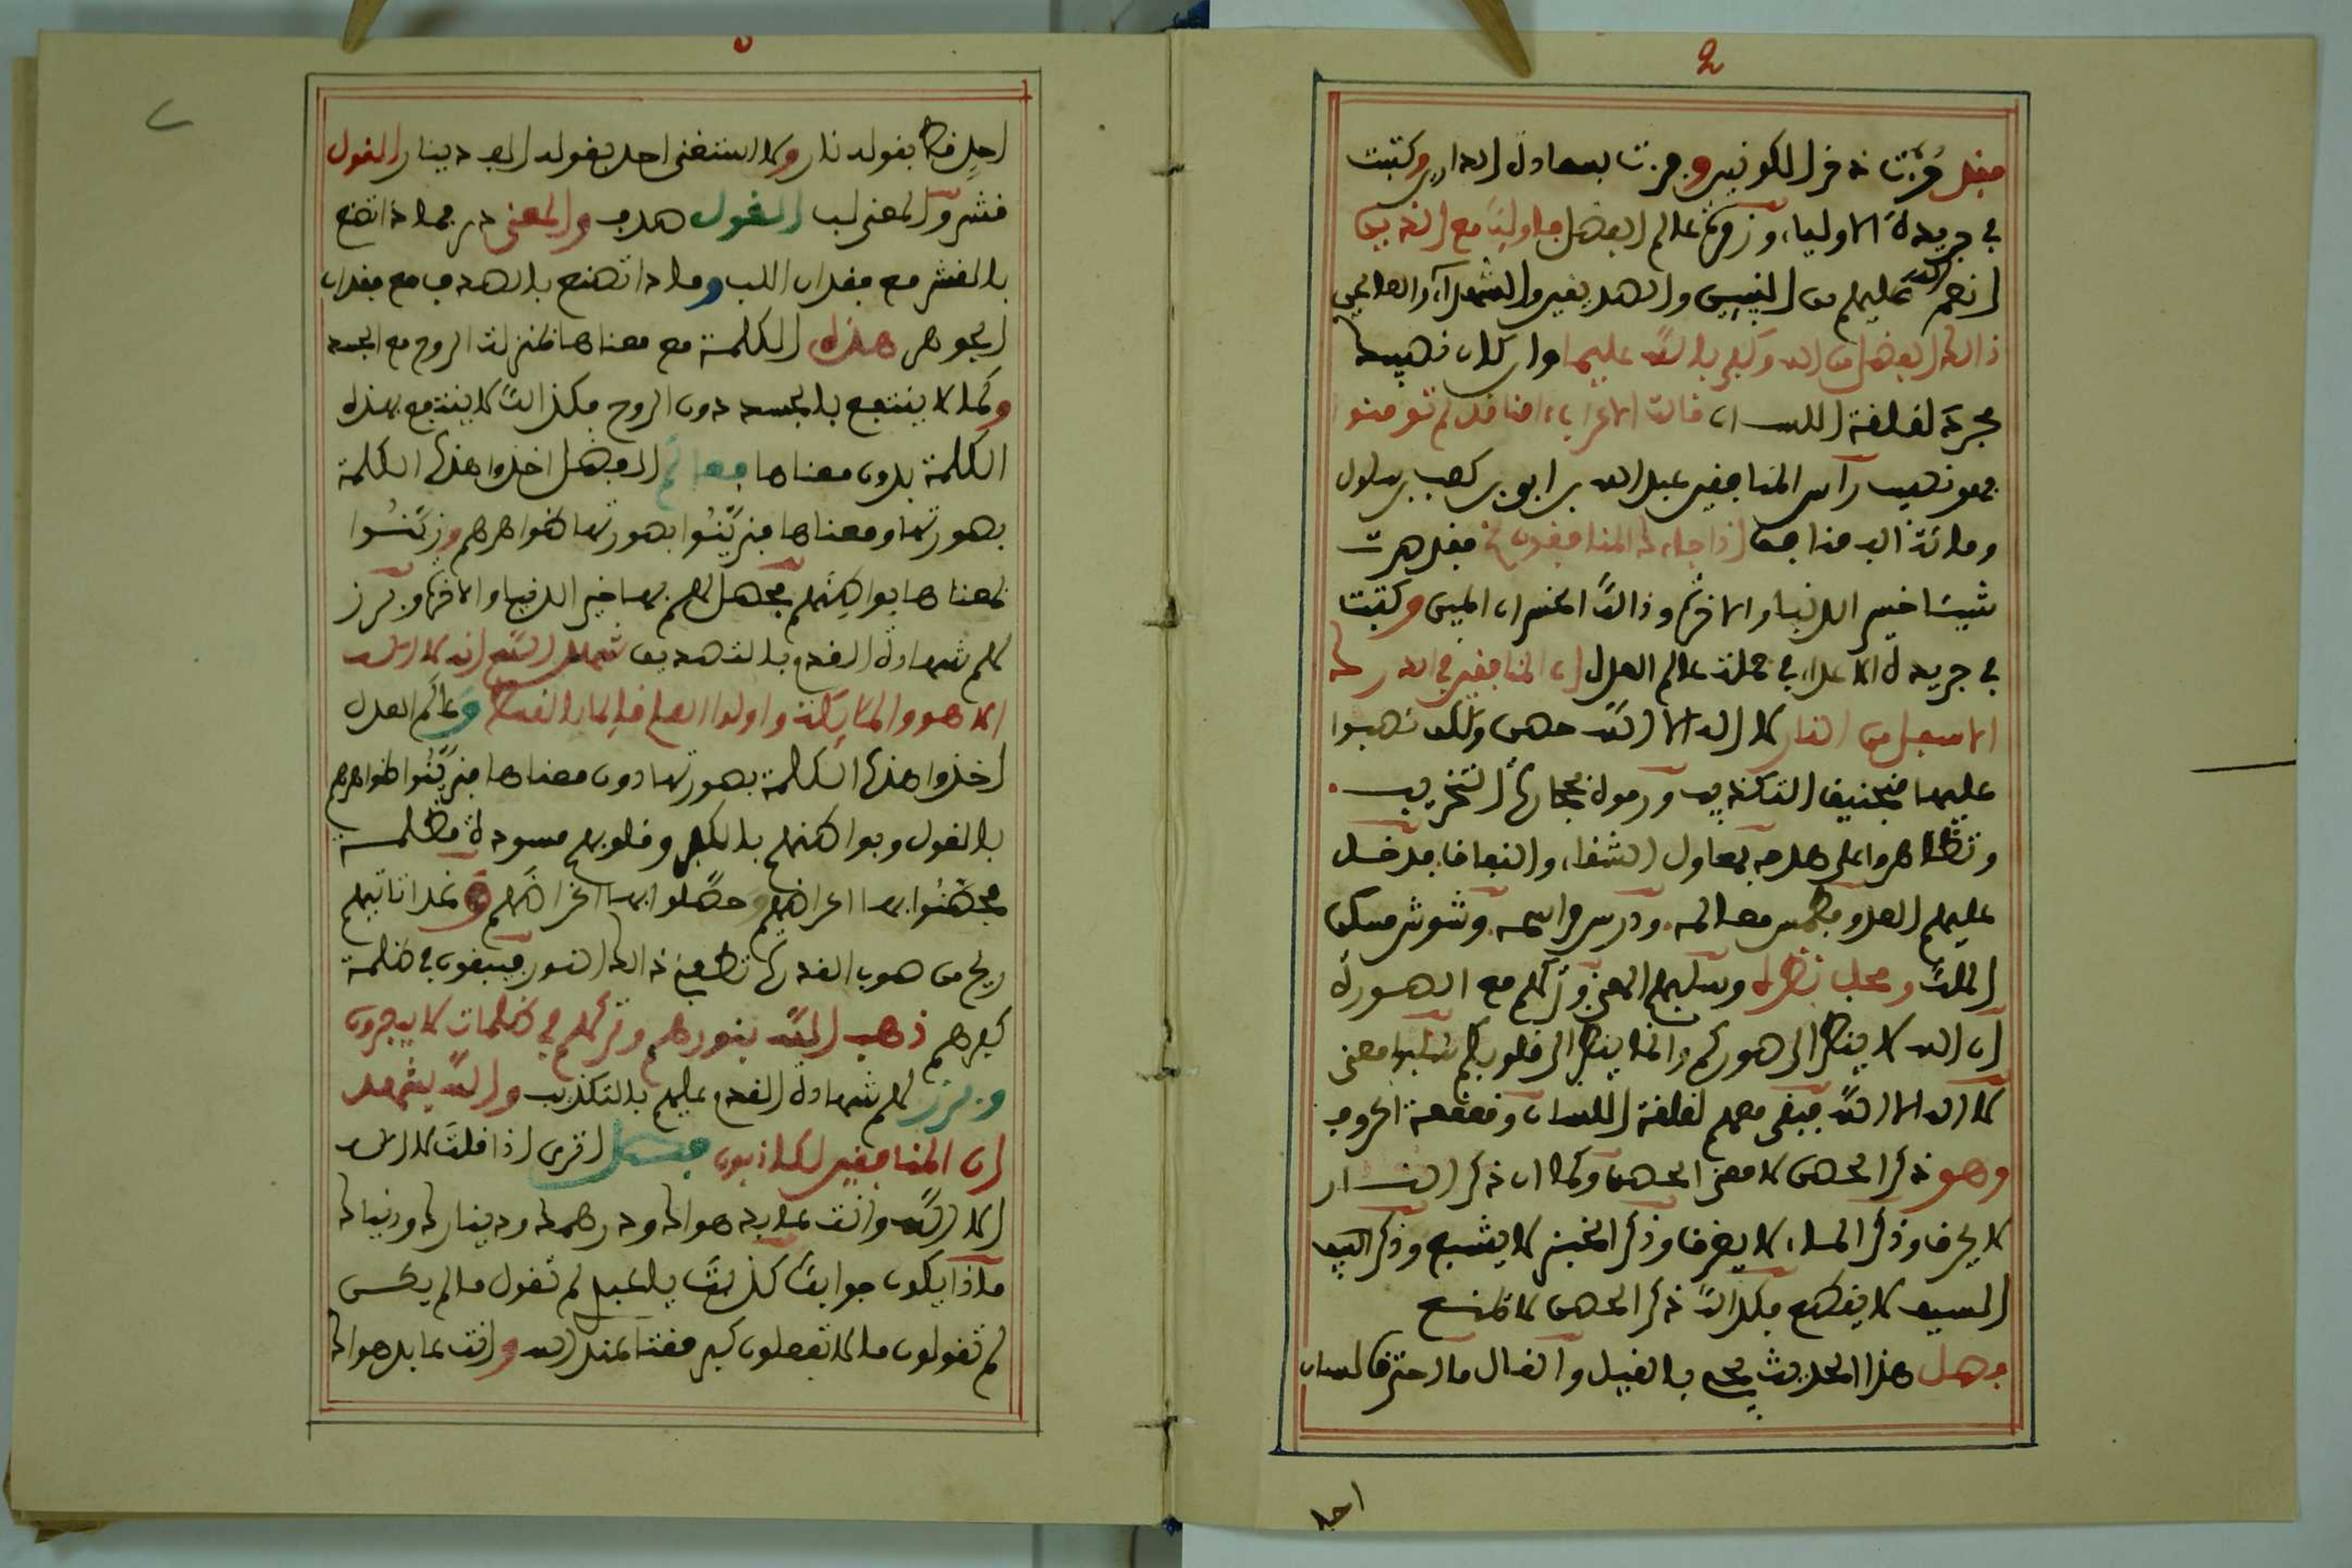 فقد فزت بذخر الكونين وفزت بسعادة الدارين وكتبت
في جريدة الاولياء وزمرة عالم الفضل فاولئك مع الذين
انعم الله عليهم من النبيين والصديقين والشهداء والصالحين
ذالك الفضل من الله وكفى بالله عليما وان كان نصيبك
مجرد لقلقة اللسان قالت الاعراب ءامنا قل لم تومنوا
فهو نصيب رأس المنافقين عبد الله بن ابي بن كعب بن سلول
ومائة الف منافق اذا جاءك المنافقون فقد صرت
شيئا خسر الدنيا والاخرة وذالك الخسران المبين وكتبت
في جريدة الاعداء في جملة عالم العدل ان المنافقين في الدرك
الاسفل من النار لا اله الا الله حصن ولكن نصبوا
عليها منجنيق التكذيب ورموه بحجارة التخريب
وتظاهروا على هدمه بمعاول الشقاء والنفاق فدخل
عليهم العدو فطمس معالمه ودرس مراسمه وشوش مسكن
الملك ومحل نظره وسلبهم المعنى وتركهم مع الصورة
ان الله لا ينظر الى صوركم وانما ينظر الى قلوبكم سلبوا معنى
لا اله الا الله فبقي معهم لقلقة اللسان وقعقعة الحروف
وهو ذكر الحصن لا معنى الحصن وكما ان ذكر النار
لا يحرق وذكر الماء لا يغرق وذكر الخبز لا يشبع وذكر
السيف لا يقطع فكذالك ذكر الحصن لا يمنع
فصل هذا الحديث بالقيل والقال ما احترق لسان
احد
احد قط بقوله نار ولا استغنى احد بقوله الف دينار القول
قشر والمعنى لب القول صدف والمعنى در فماذا تصنع
بالقشر مع فقدان اللب وماذا تصنع بالصدف مع فقدان
الجوهر هذه الكلمة مع معناها بمنزلة الروح مع الجسد
وكما لا ينتفع بالجسد دون الروح فكذالك لا ينتفع بهذه
الكلمة بدون معناها فعالم الفضل اخذوا هذه الكلمة
بصورتها ومعناها فزينوا بصورتها ظواهرهم وزينوا
بمعناها بواطنهم فحصل لهم بها خير الدنيا والاخرة وبرز
لهم شهادة القدم بالتصديق شهد الله انه لا اله
الا هو والملائكة واولوا العلم قائما بالقسط وعالم العدل
اخذوا هذه الكلمة بصورتها دون معناها فزينوا ظواهرهم
بالقول وبواطنهم بالكفر وقلوبهم مسودة مظلمة
فحصنوا بها اعراضهم وحصلوا بها اغراضهم وغدا تاتيهم
ريح من صوب القدرة تطفئ ذالك النور فيبقون في ظلمة
كفرهم ذهب الله بنورهم وتركهم في ظلمات لا يبصرون
وبرزت لهم شهادة القدم عليهم بالتكذيب والله يشهد
ان المنافقين لكاذبون فصل اترى اذا قلت لا اله
الا الله وانت عابد هواك ودرهمك ودينارك ودنياك
ماذا يكون جوابك كذبت يا عبدي لم تقول ما لم يكن
لم تقولون ما لا تفعلون كبر مقتا عند الله وانت عابد هواك